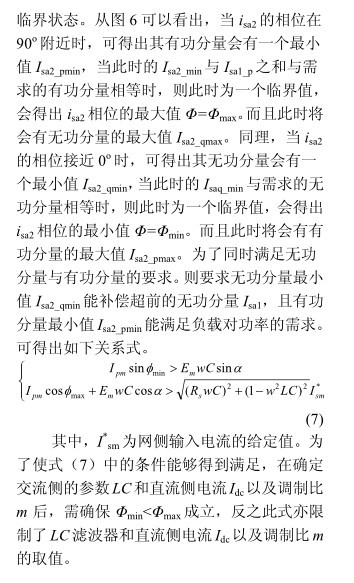 临界状态。从图 6 可以看出，当 isa2 的相位在
90º 附近时，可得出其有功分量会有一个最小
值 Isa2_pmin，当此时的 Isa2_min 与 Isa1_p 之和与需
求的有功分量相等时，则此时为一个临界值，
会得出 isa2 相位的最大值 Φ=Φmax。而且此时将
会有无功分量的最大值 Isa2_qmax。同理，当 isa2
的相位接近 0º 时，可得出其无功分量会有一
个最小值 Isa2_qmin，当此时的 Isaq_min 与需求的无
功分量相等时，则此时为一个临界值，会得出
isa2 相位的最小值 Φ=Φmin。而且此时将会有有
功分量的最大值 Isa2_pmax。为了同时满足无功
分量与有功分量的要求。则要求无功分量最小
值 Isa2_qmin 能补偿超前的无功分量 Isa1，且有功
分量最小值 Isa2_pmin 能满足负载对功率的需求。
可得出如下关系式。
{ Ipm sin ϕmin > EmwC sin α
Ipm cos ϕmax + EmwC cos α > √((RswC)² + (1−w²LC)²) I*sm
(7)
其中，I*sm 为网侧输入电流的给定值。为
了使式（7）中的条件能够得到满足，在确定
交流侧的参数 LC 和直流侧电流 Idc 以及调制比
m 后，需确保 Φmin<Φmax 成立，反之此式亦限
制了 LC 滤波器和直流侧电流 Idc 以及调制比 m
的取值。